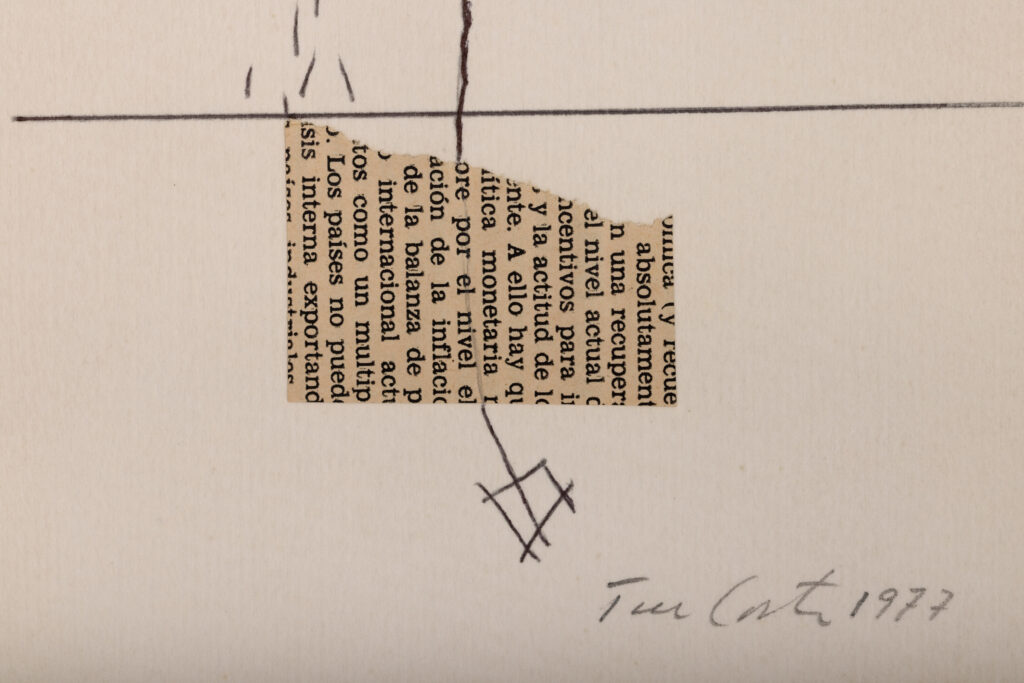 (y recue
absolutament
n una recupera
el nivel actual d
ncentivos para i
y la actitud de lo
ente. A ello hay qu
lítica monetaria
bre por el nivel el
ación de la inflació
de la balanza de p
internacional actu
tos como un multip
o. Los países no pued
sis interna exportand
países industriales
Tur Costa 1977